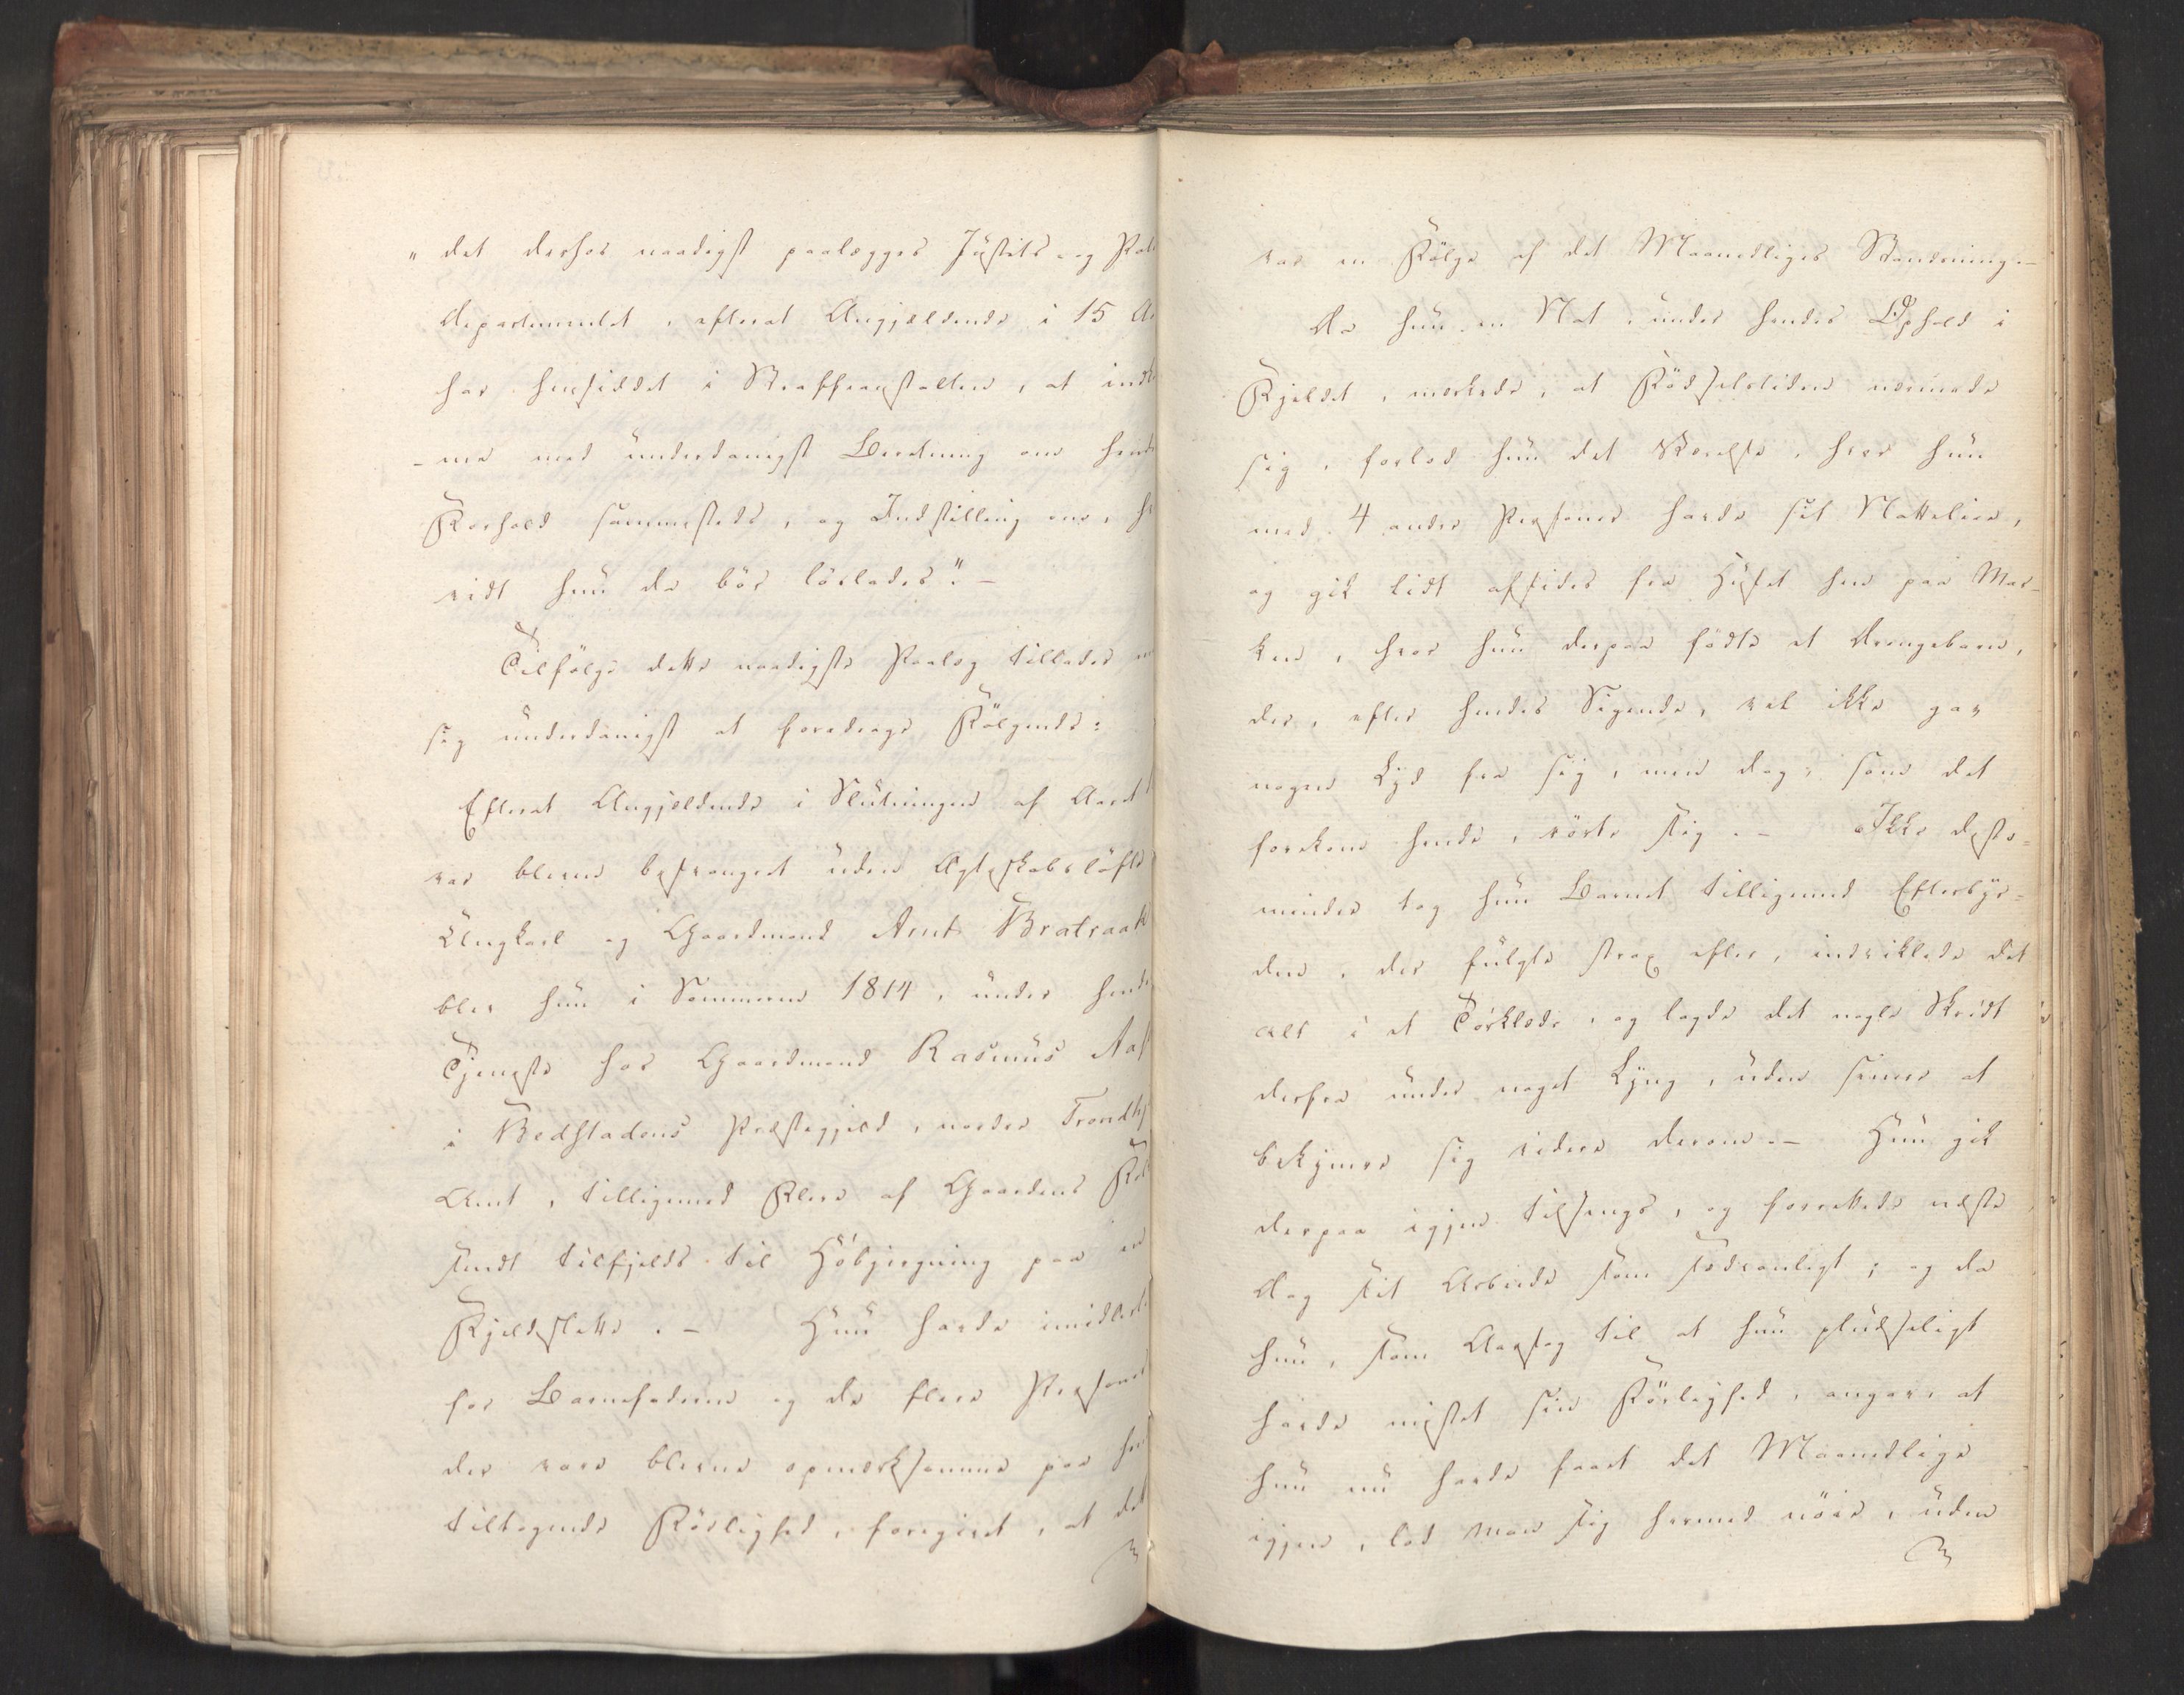 "det derhos naadigst paalægges Justits- og Poli
Departementet, efterat Angjældende i 15 Aa
har hensiddet i Straffeanstalten, at indk
-me med underdanigst Beretning om hend
Forhold sammesteds, og Indstilling om, hv
vidt hun da bör löslades". -
Tilfölge dette naadigste Paalæg tillader m
sig underdanigst at foredrage Fölgende:
Efterat Angjeldende i Slutningen af Aaret
var bleven besvangret uden Ægteskabslöfte
Ungkarl og Gaardmand Arnt Bratraak
blev hun i Sommeren 1814, under hende
Tjeneste hos Gaardmand Rasmus Aas
i Bedstadens Præstegjeld, norder Trondhj
Amt, tilligemed Flere af Gaardens Fol
sendt tilfjelds til Höbjergning paa en
Fjeldslette. - Hun havde imidlerti
for Barnefaderen og de flere Personer
der vare blevne opmærksomme paa hen
tiltagende Förlighed, foregivet, at det
var en Fölge af det Maanedliges Standsning. -
Da hun en Nat, under hendes Ophold i
Fjeldet, mærkede, at Födselstiden nærmede
sig, forlod hun det Værelse, hvor hun
med 4 andre Personer havde sit Natteleie,
og gik lidt afsides fra Huset hen paa Mar-
ken, hvor hun derpaa födte et Drengebarn,
der, efter hendes Sigende, vel ikke gav
nogen Lyd fra sig, men dog, som det
forekom hende, rörte sig. - Ikke desto-
mindre tog hun Barnet tilligemed Efterbyr-
den, der fulgte strax efter, indviklede det
alt i et Törklæde, og lagde det nogle Skridt
derfra under noget Lyng, uden siden at
bekymre sig videre derom. - Hun gik
derpaa igjen tilsengs, og forrettede næste
Dag sit Arbeide som sædvanligt; og da
hun, som Aarsag til at hun pludseligt
havde mistet sin Förlighed, angav, at
hun nu havde faaet det Maanedlige
igjen, lod man sig hermed nöie, uden